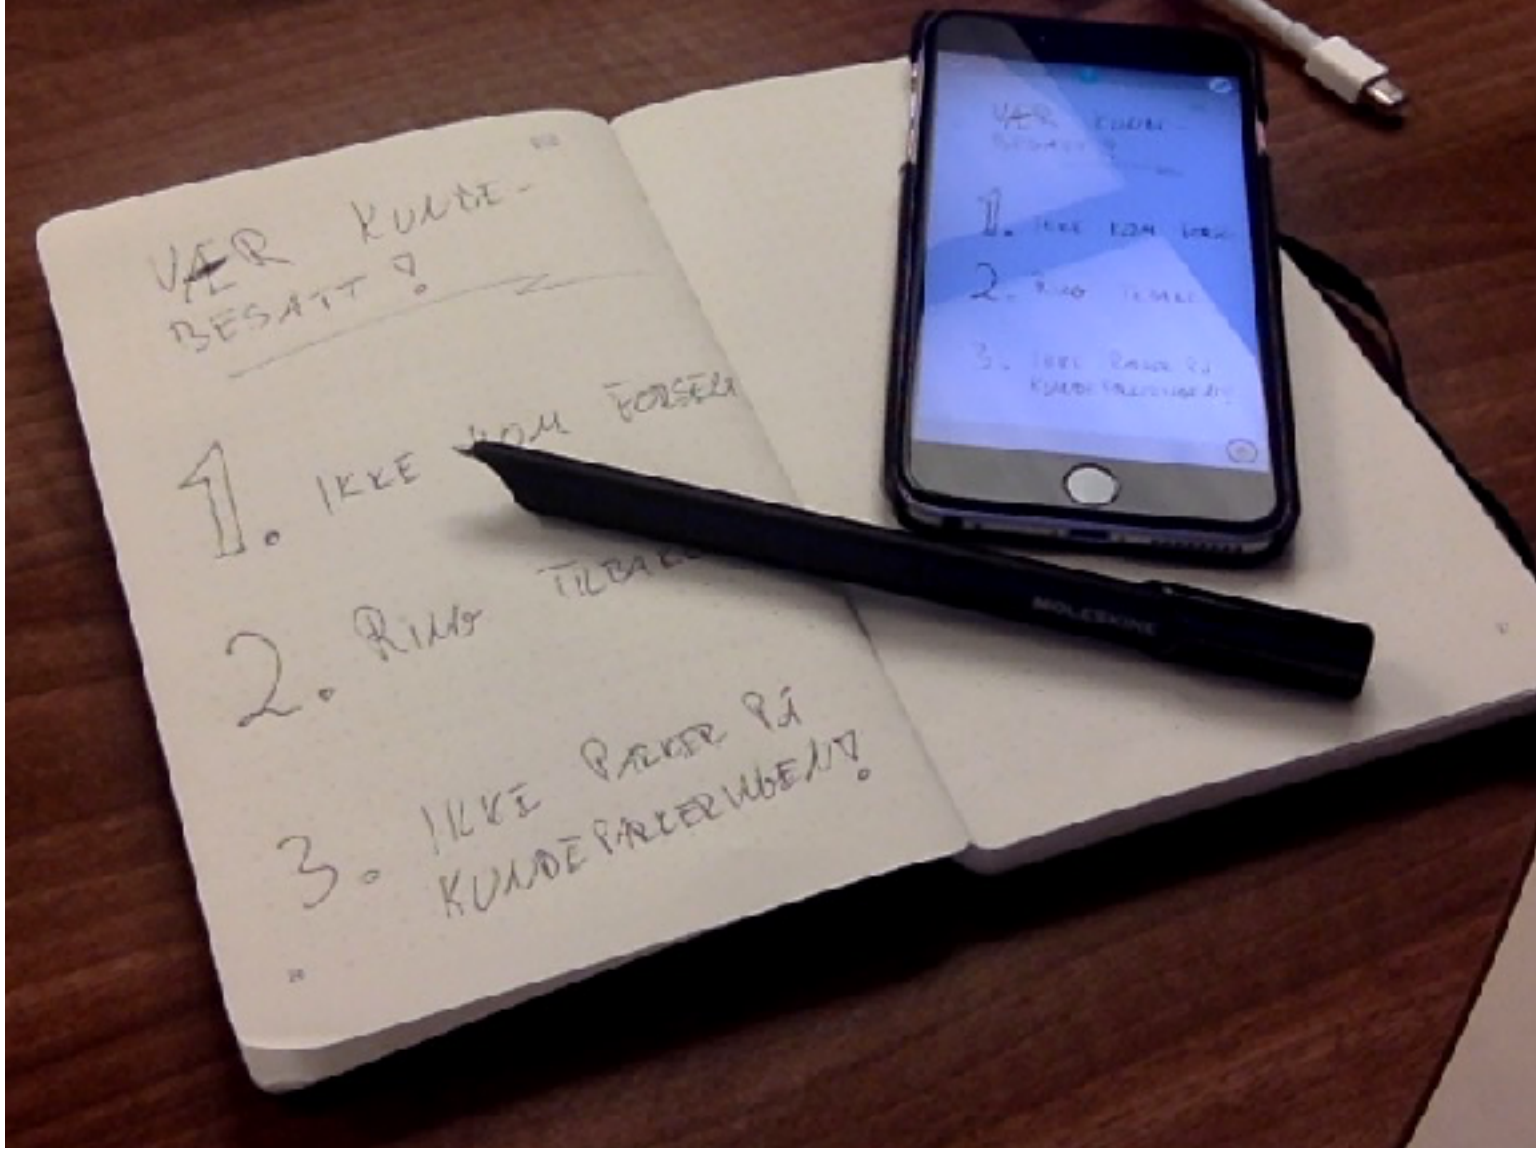 VÆR KUNDE-
BESATT!
1. IKKE KOM FORSENT
2. RING TILBAKE
3. IKKE PARKER PÅ
KUNDEPARKERINGEN!
MOLESKINE
VÆR KUNDE-
BESATT!
1. IKKE KOM
2. RING TILBAKE
3. IKKE PARKER PÅ
KUNDEPARKERINGEN!